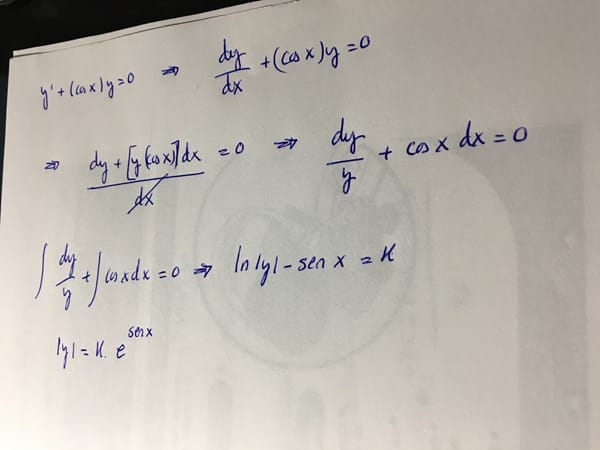 y' + (cos x) y = 0 ⇒ dy/dx + (cos x) y = 0
⇒ dy + [y (cos x)] dx / dx = 0 ⇒ dy/y + cos x dx = 0
∫ dy/y + ∫ cos x dx = 0 ⇒ ln|y| - sen x = K
|y| = K. e^sen x